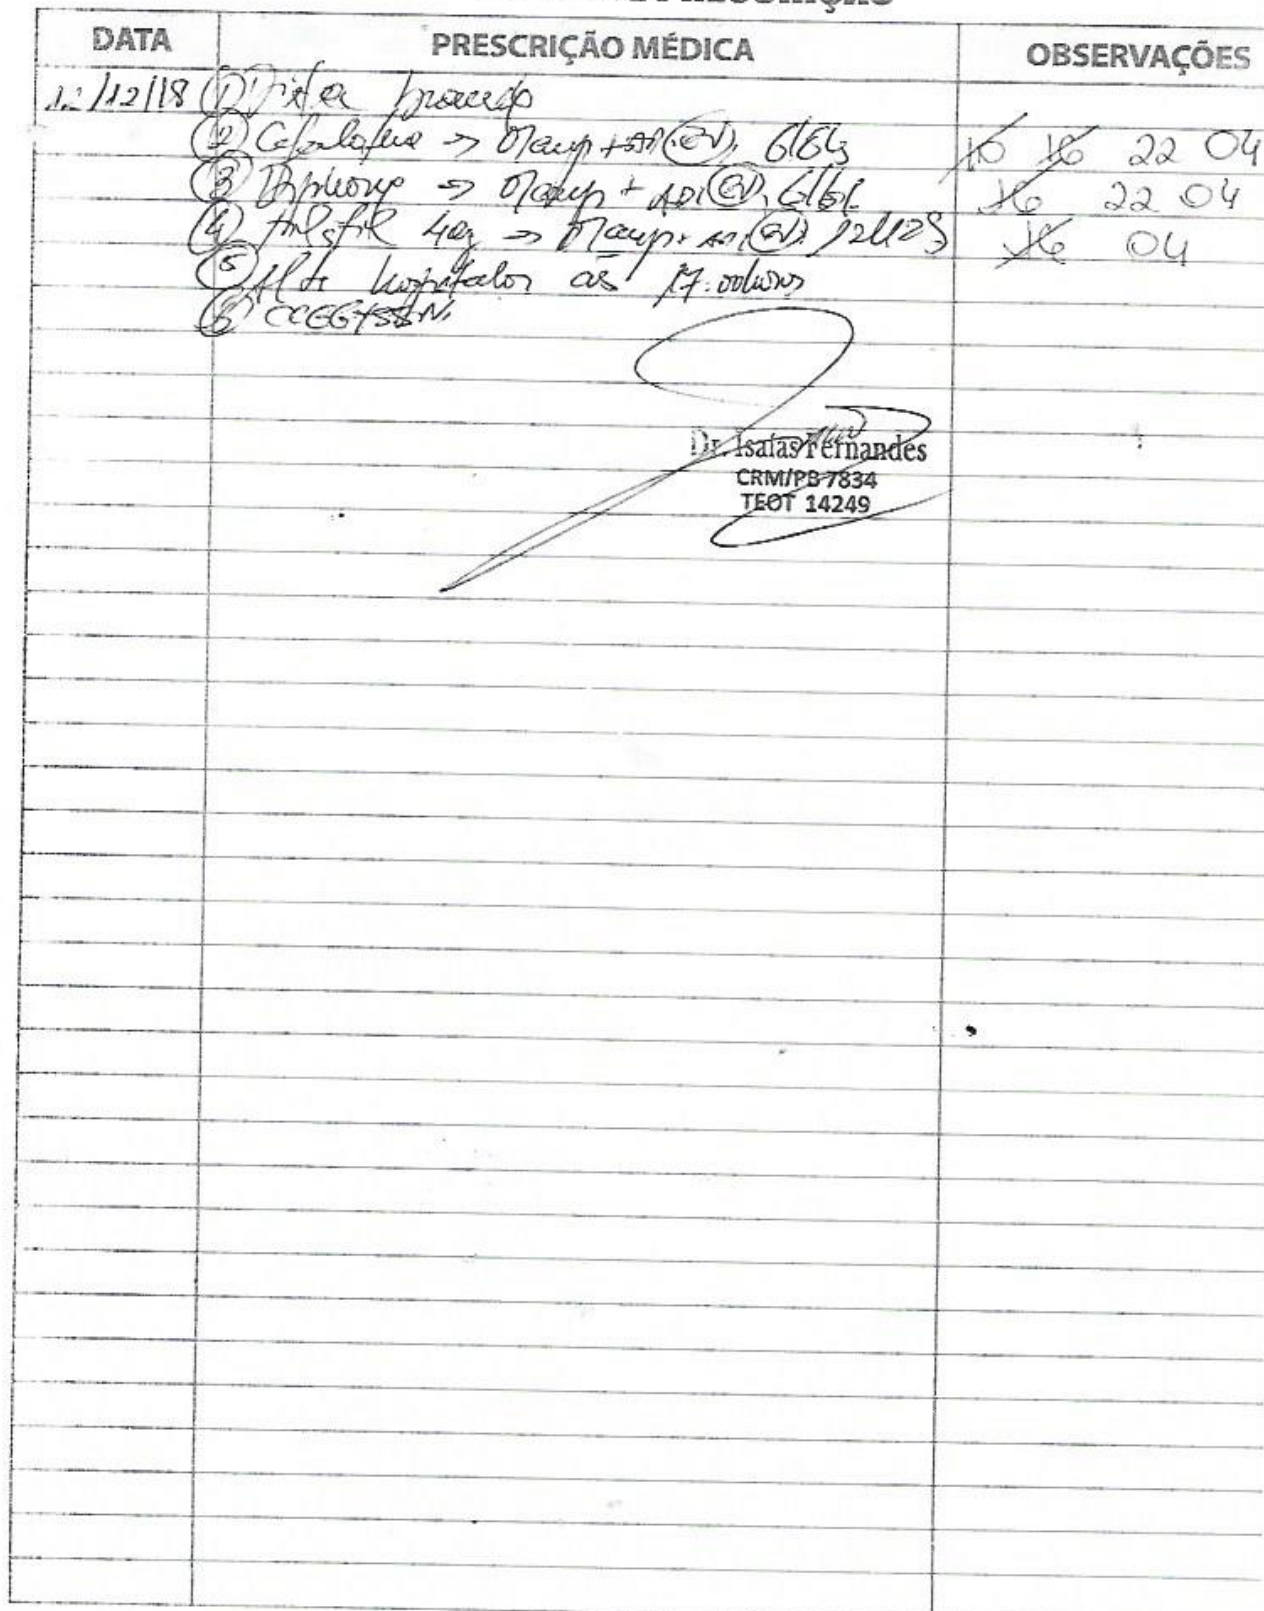 PRESCRIÇÃO
DATA PRESCRIÇÃO MÉDICA OBSERVAÇÕES
12/12/18 ① Dieta branda
② Cefalotina → 01 amp + AD (EV), 6/6hs 10 16 22 04
③ Dipirona → 01 amp + AD (EV), 6/6h 16 22 04
④ 40mg → 01 amp + AD (EV), 12/12hs 16 04
⑤ Alta hospitalar às 17:00horas
⑥ CCGG + SSVV
Dr. Isaías Fernandes
CRM/PB 7834
TEOT 14249